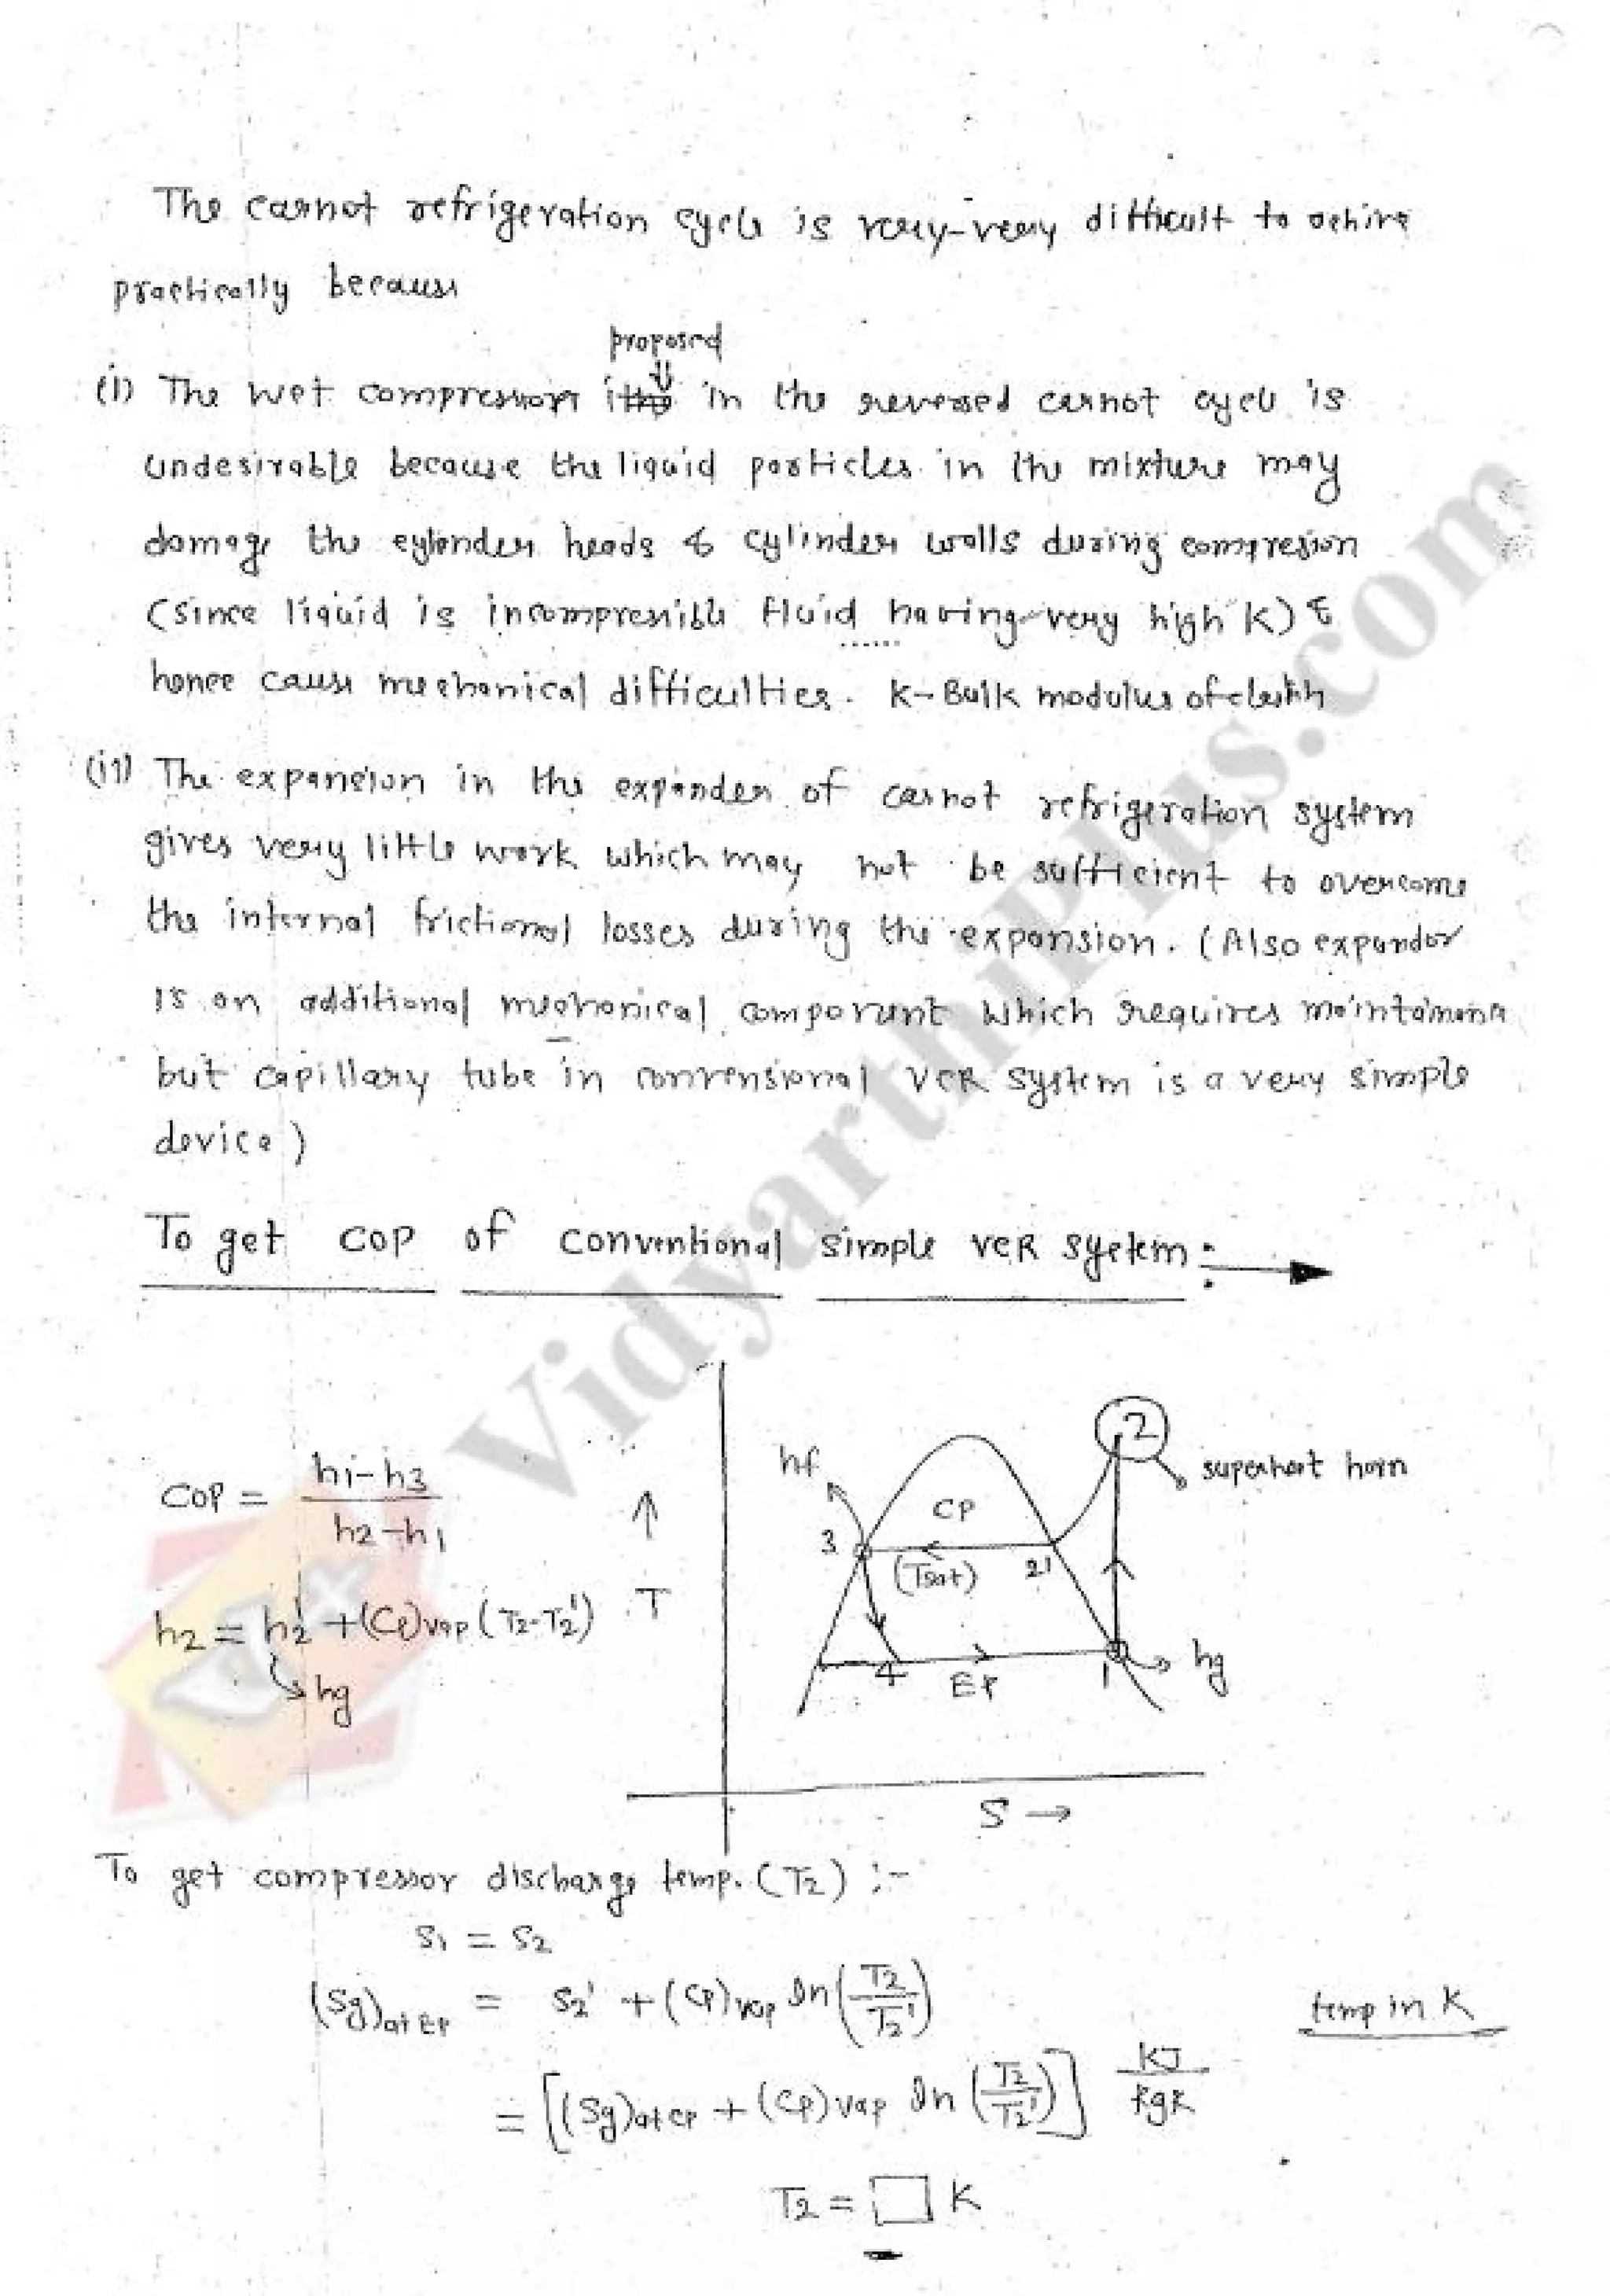 The carnot refrigeration cycle is very-very difficult to achive
practically because
proposed
(i) The wet compression in the reversed carnot cycle is
undesirable because the liquid particles in the mixture may
damage the cylinder heads & cylinder walls during compresion
(since liquid is incompressible fluid having very high K) &
hence cause mechanical difficulties. K-Bulk modulus of
(ii) The expansion in the expander of carnot refrigeration system
gives very little work which may not be sufficient to overcome
the internal frictional losses during the expansion. (Also expandor
is an additional mechanical component which requires
but capillary tube in convensional VCR system is a very simple
device)
To get COP of conventional simple VCR system :
COP = h1-h3 / h2-h1
h2 = h2' + (Cp)vap (T2-T2')
hg
↑
T
hf
3
CP
(Tsat)
2'
2
superheat horn
4
EP
1
hg
S →
To get compressor discharge temp. (T2) :-
S1 = S2
(Sg)at EP = S2' + (Cp)vap ln(T2/T2')
temp in K
= [(Sg)at CP + (Cp)vap ln (T2/T2')] KJ/kgK
T2 = □ K
VidyarthiPlus.com